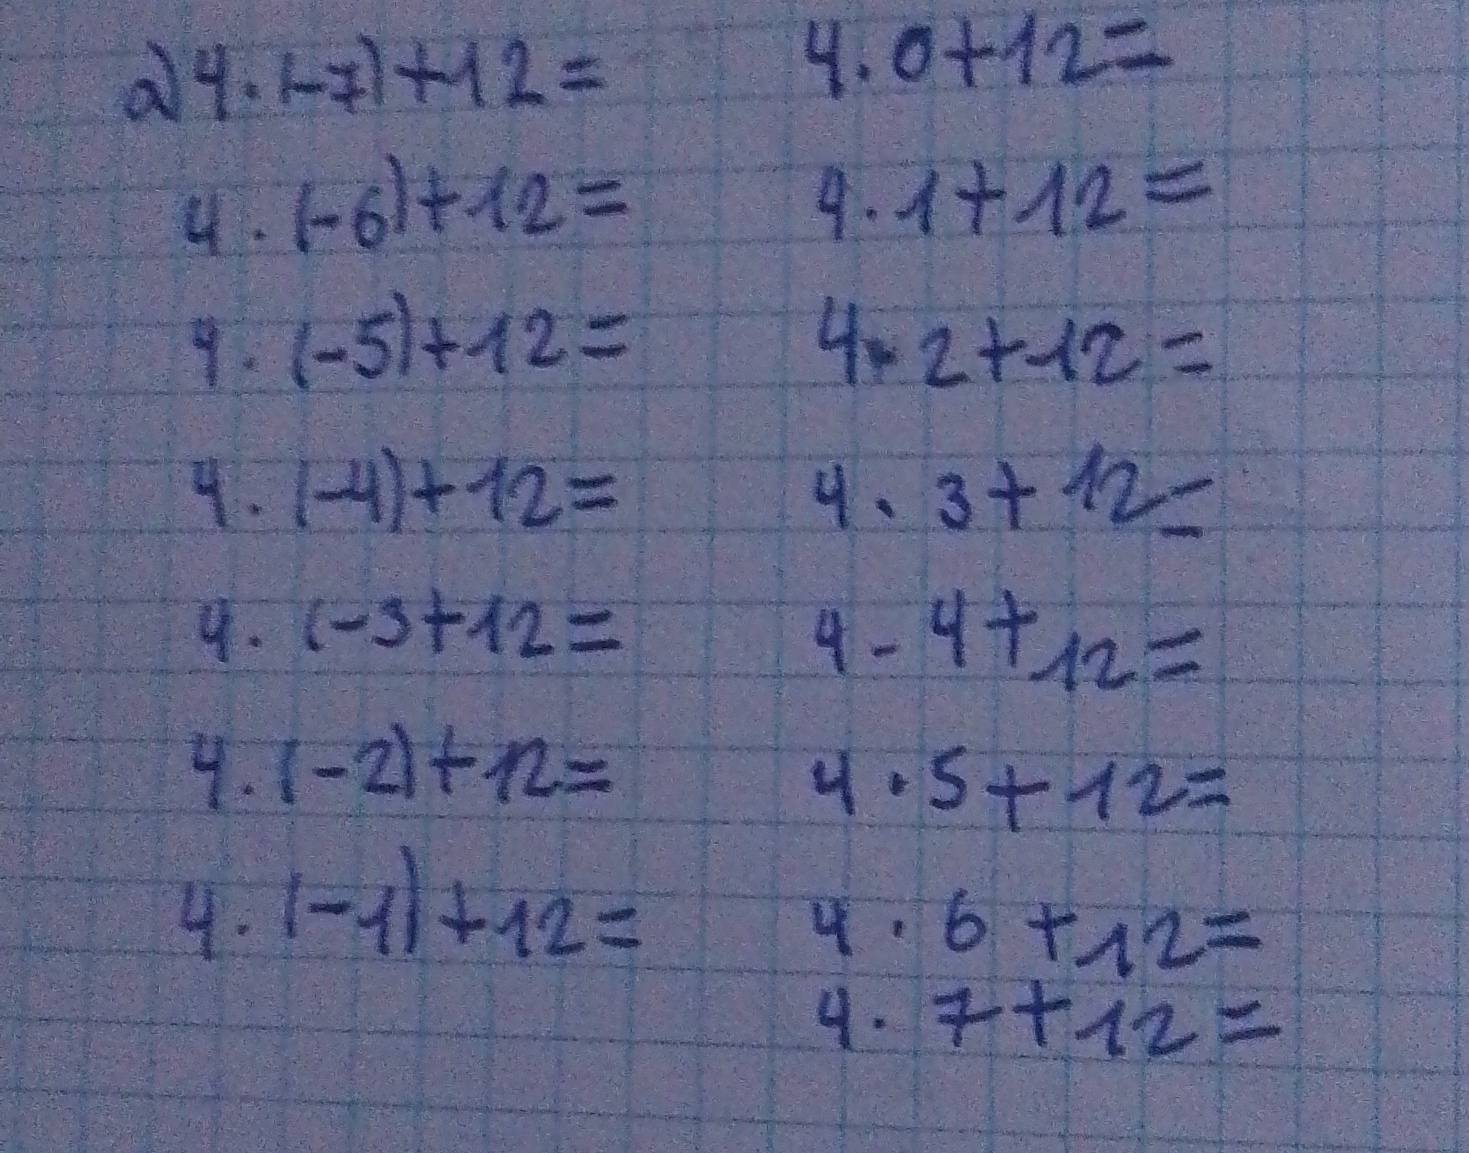 a) 4 · (-7) + 12 =
4 · (-6) + 12 =
4 · (-5) + 12 =
4 · (-4) + 12 =
4 · (-3 + 12 =
4 · (-2) + 12 =
4 · (-1) + 12 =
4 · 0 + 12 =
4 · 1 + 12 =
4 · 2 + 12 =
4 · 3 + 12 =
4 - 4 + 12 =
4 · 5 + 12 =
4 · 6 + 12 =
4 · 7 + 12 =